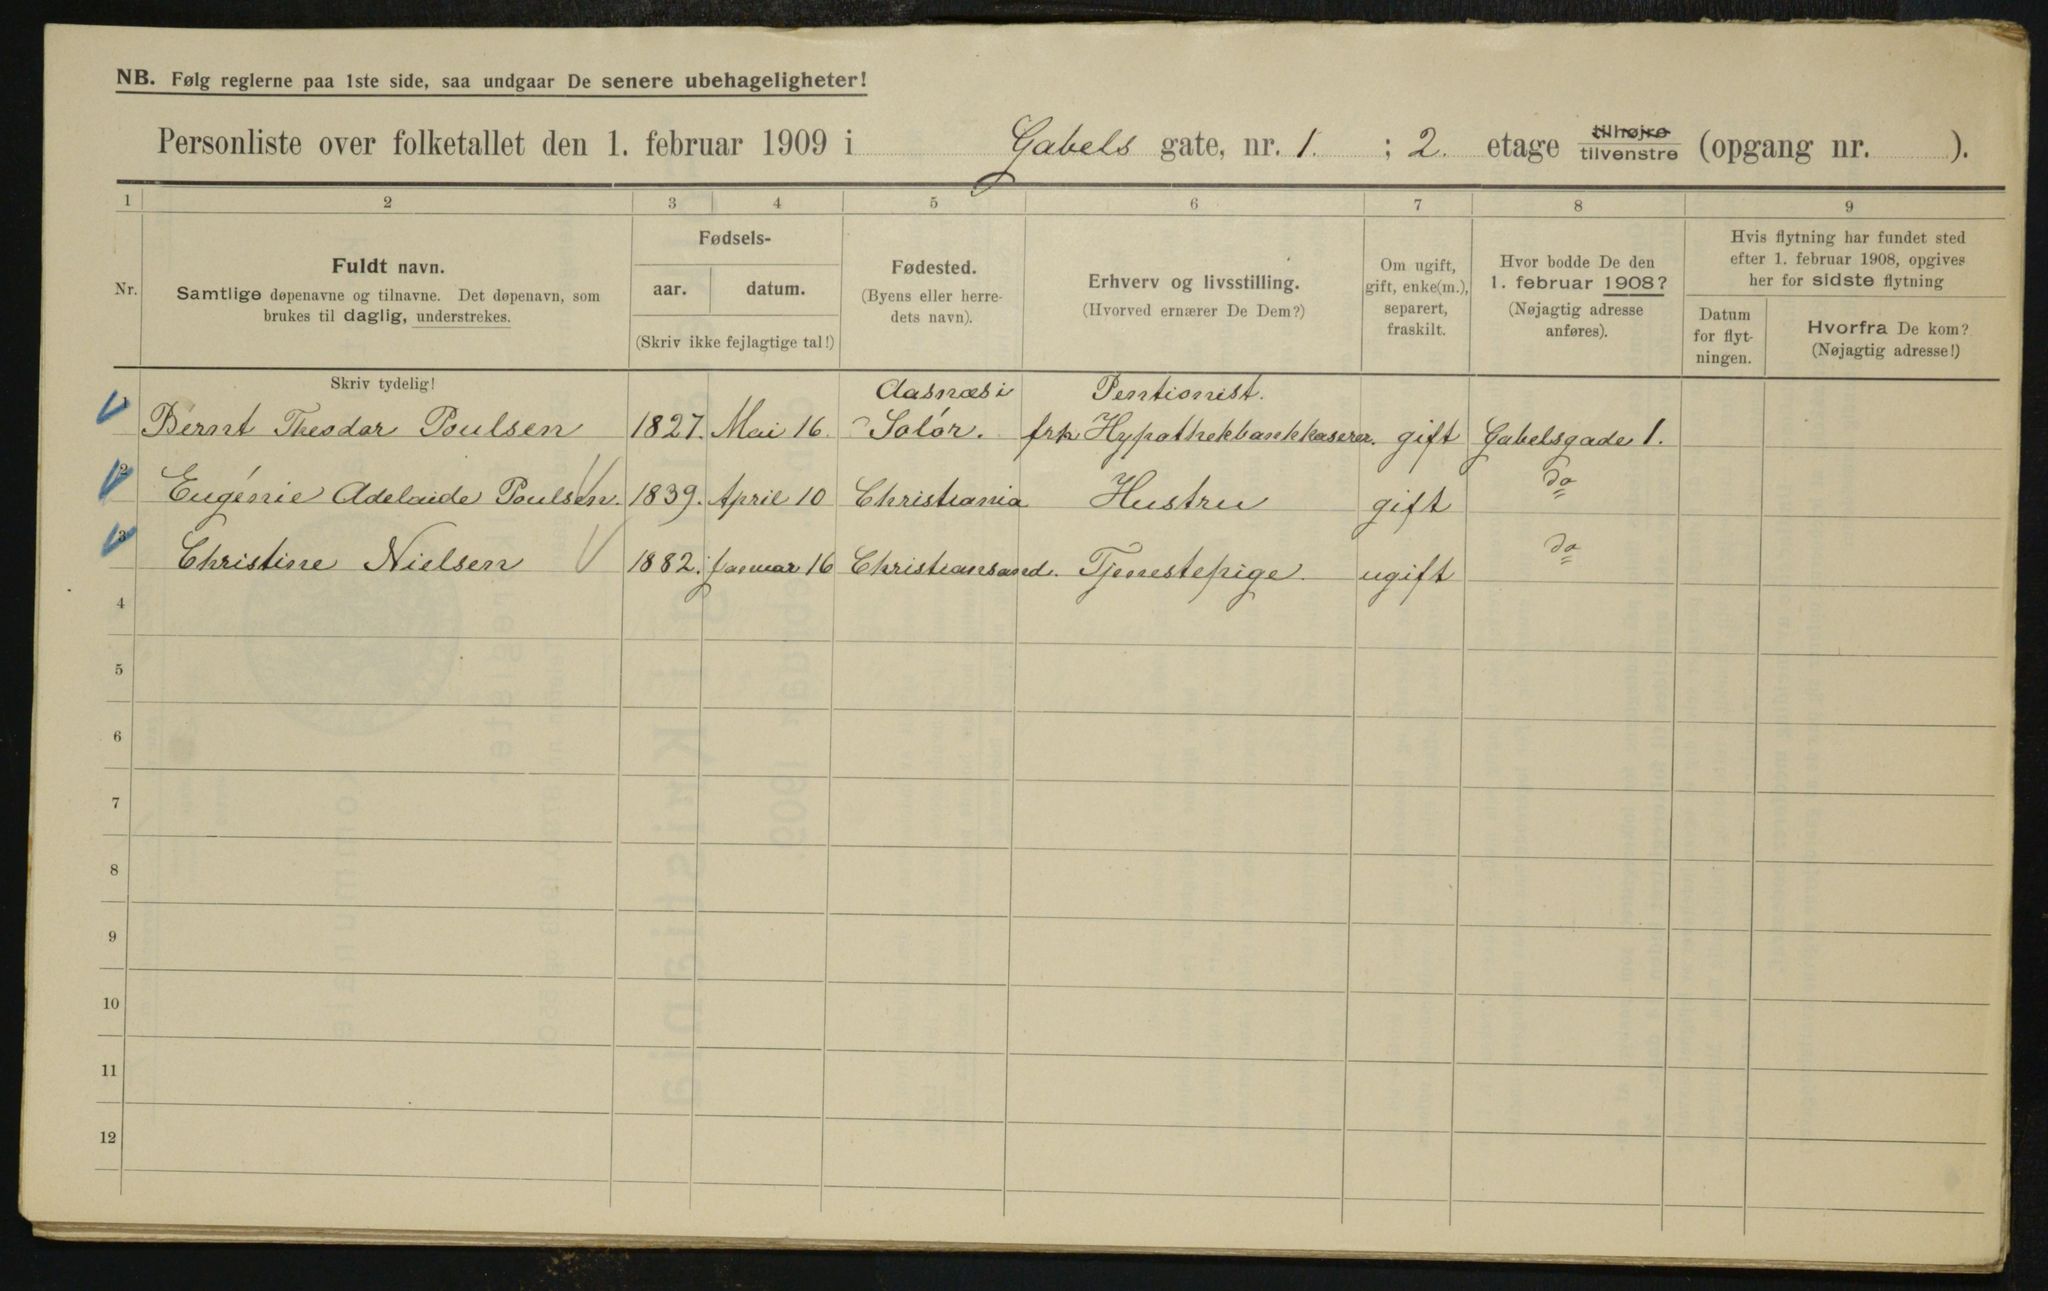 NB. Følg reglerne paa 1ste side, saa undgaar De senere ubehageligheter!
Personliste over folketallet den 1. februar 1909 i Gabels gate, nr. 1. ; 2. etage tilhøjre tilvenstre (opgang nr. ).
1 2 3 4 5 6 7 8 9
Nr.
Fuldt navn.
Samtlige døpenavne og tilnavne. Det døpenavn, som
brukes til daglig, understrekes.
Fødsels-
aar. datum.
(Skriv ikke fejlagtige tal!)
Fødested.
(Byens eller herre-
dets navn).
Erhverv og livsstilling.
(Hvorved ernærer De Dem?)
Om ugift,
gift, enke(m.),
separert,
fraskilt.
Hvor bodde De den
1. februar 1908?
(Nøjagtig adresse
anføres).
Hvis flytning har fundet sted
efter 1. februar 1908, opgives
her for sidste flytning
Datum
for flyt-
ningen.
Hvorfra De kom?
(Nøjagtig adresse!)
Skriv tydelig!
Aasnæs i Pentionist.
1 Bernt Theodor Poulsen 1827. Mai 16. Solør. Hypothekbankkaserer. gift Gabelsgade 1.
2 Eugénie Adelaide Poulsen. 1839. April 10 Christiania Hustru gift do
3 Christine Nielsen 1882. Januar 16 Christiansand. Tjenestepige. ugift do
4
5
6
7
8
9
10
11
12